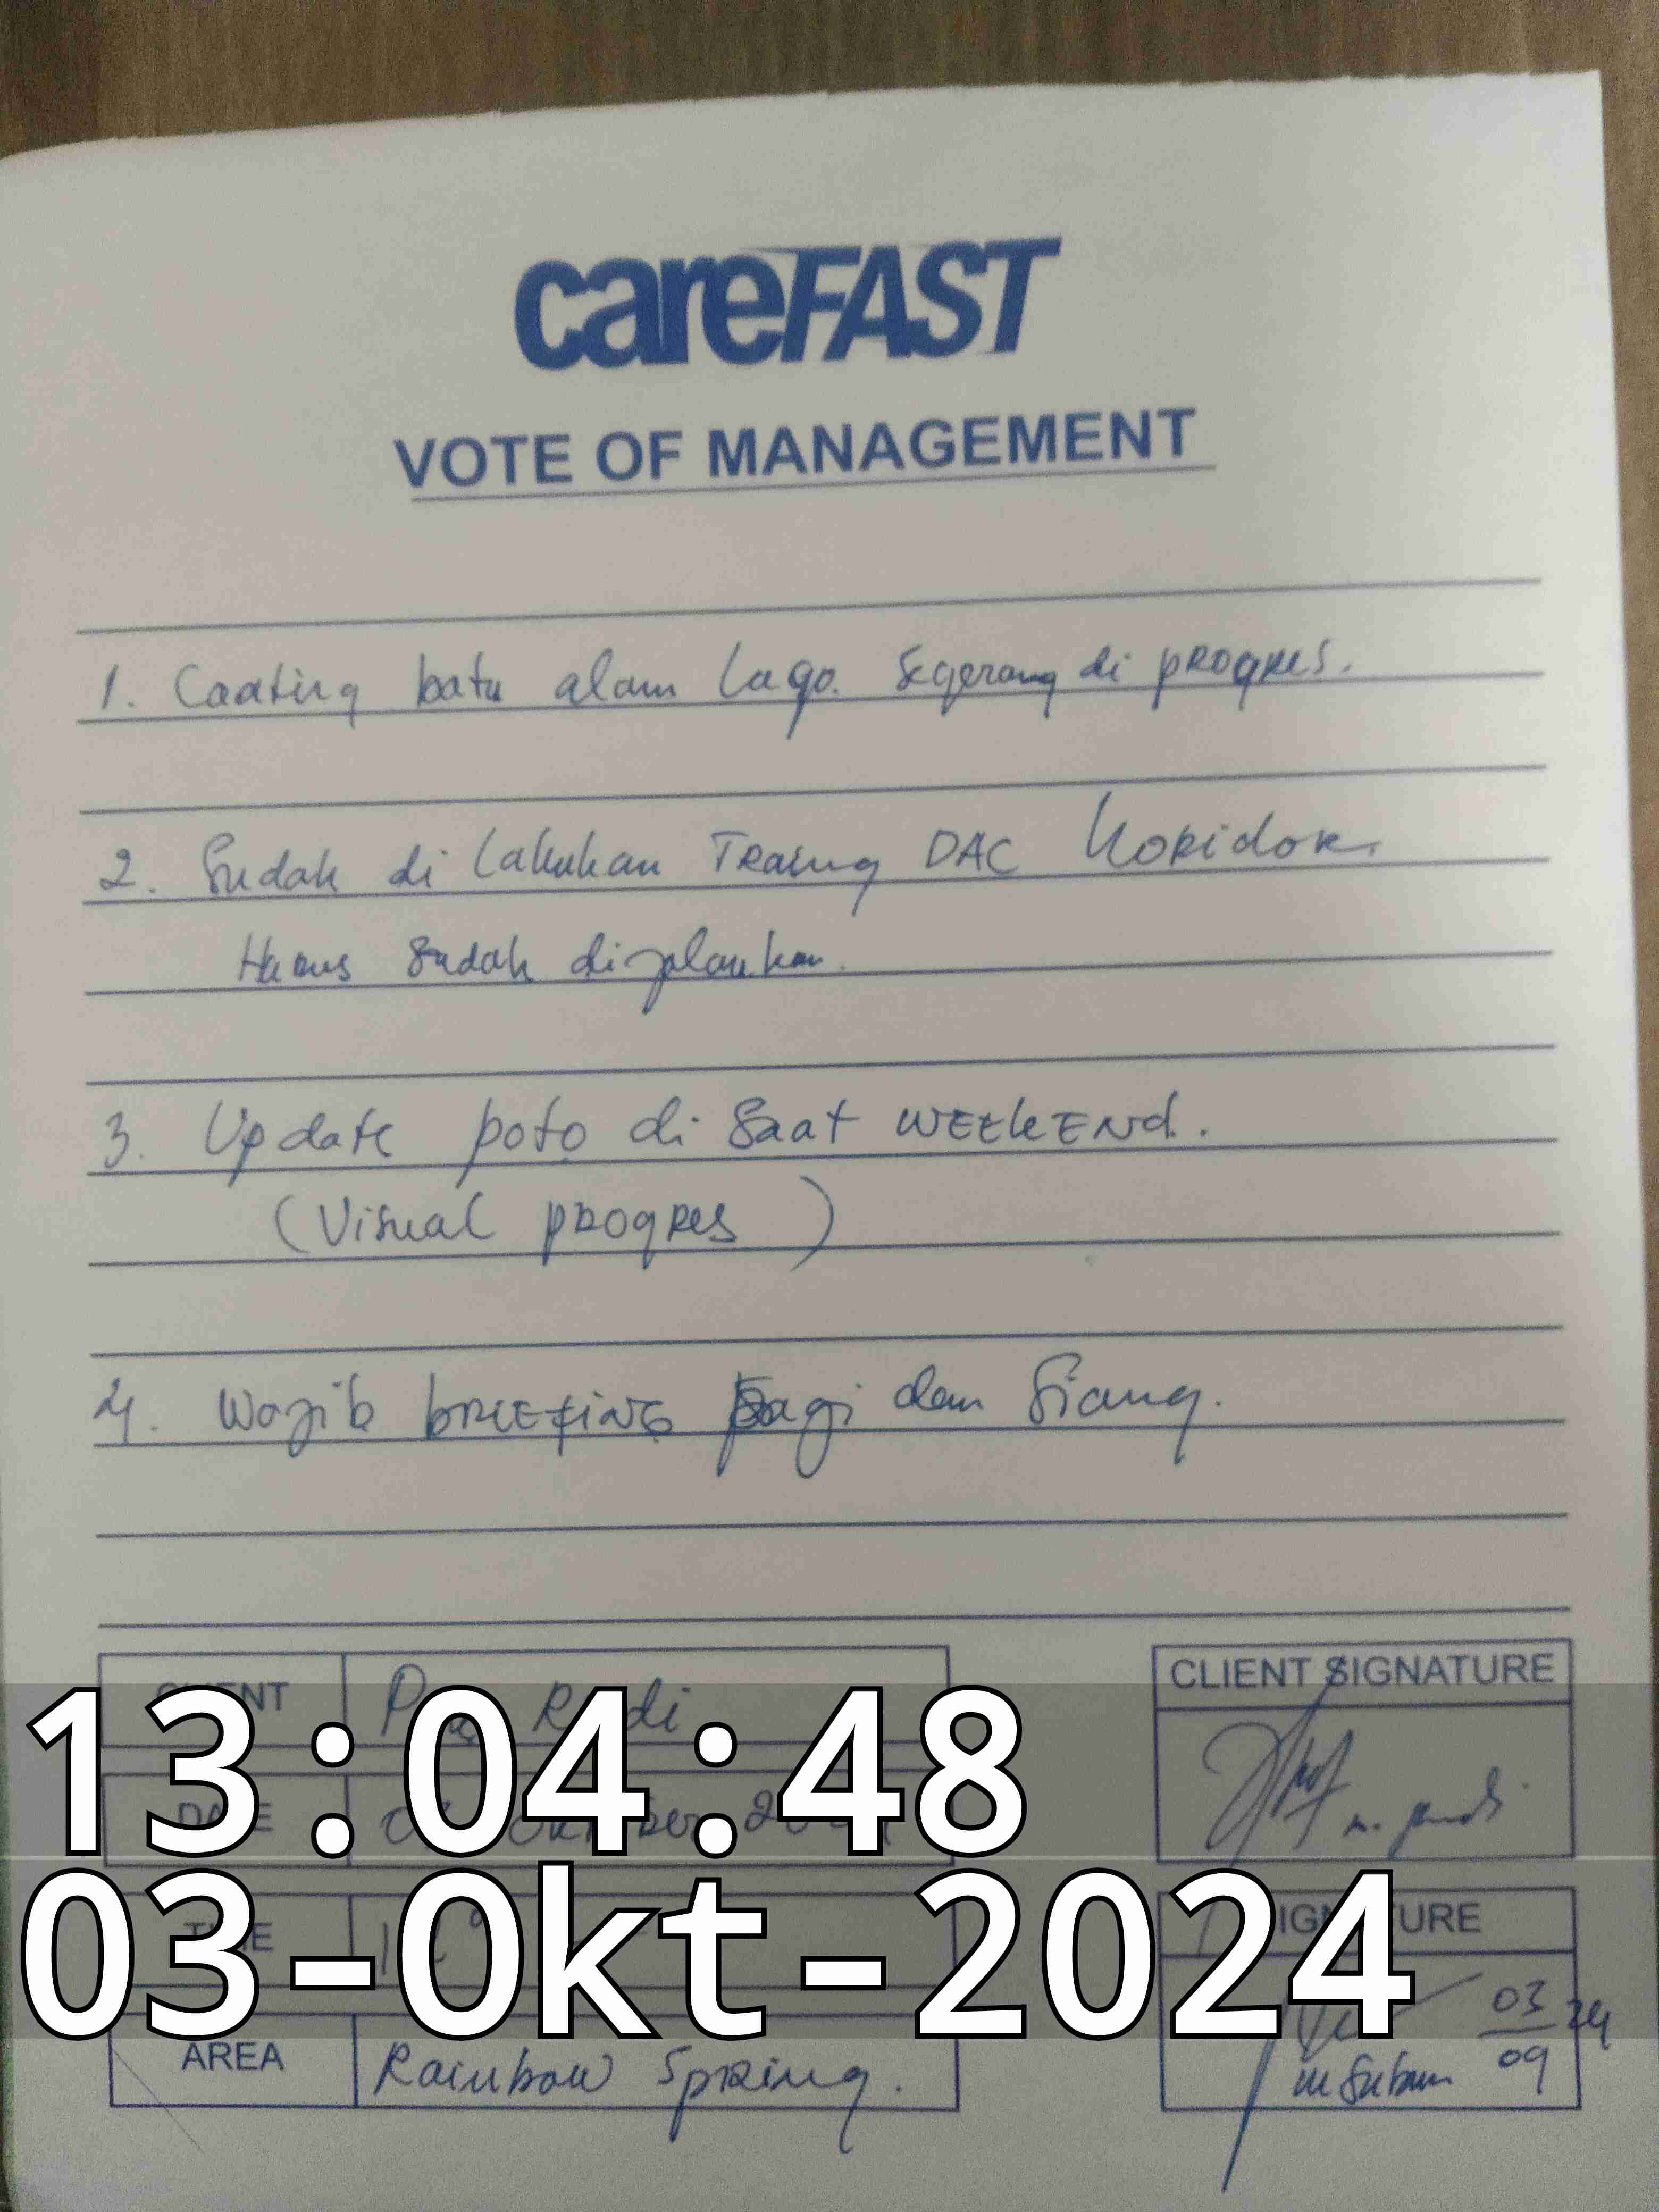 careFAST
VOTE OF MANAGEMENT
1. Coating batu alam Lago. Segerang di progres.
2. Sudah di Lakukan Traing DAC Koridor.
Harus sudah dijalankan.
3. Update poto di saat WEEKEND.
(Visual progres)
4. Wajib briefing pagi dan Siang.
CLIENT SIGNATURE
13:04:48
03-Okt-2024
AREA Rainbow Spring.
03 24
09